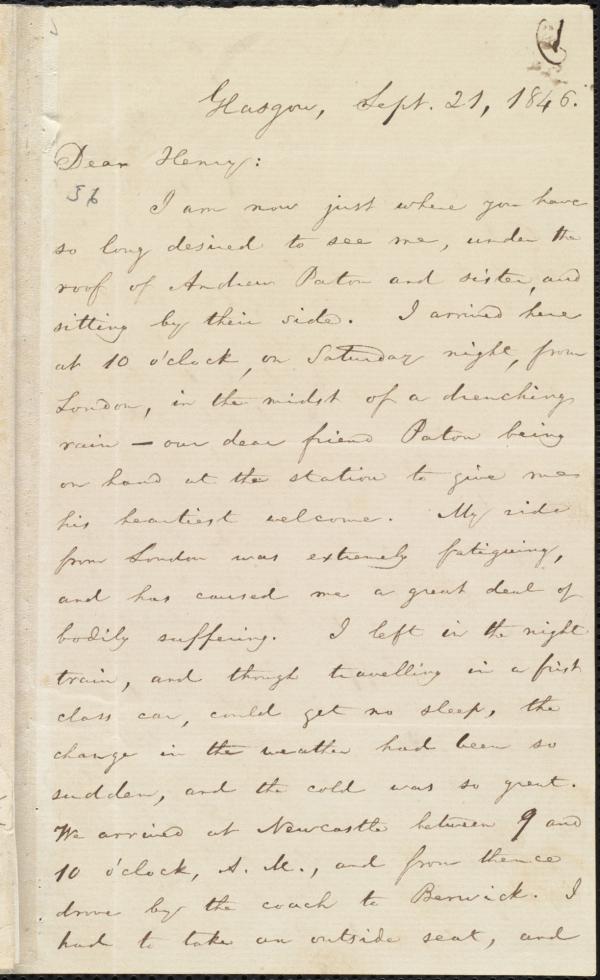 1
Glasgow, Sept. 21, 1846.
Dear Henry:
I am now just where you have
so long desired to see me, under the
roof of Andrew Paton and sister, and
sitting by their side. I arrived here
at 10 o'clock, on Saturday night, from
London, in the midst of a drenching
rain — our dear friend Paton being
on hand at the station to give me
his heartiest welcome. My ride
from London was extremely fatiguing,
and has caused me a great deal of
bodily suffering. I left in the night
train, and though travelling in a first
class car, could get no sleep, the
change in the weather had been so
sudden, and the cold was so great.
We arrived at Newcastle between 9 and
10 o'clock, A. M., and from thence
drove by the coach to Berwick. I
had to take an outside seat, and